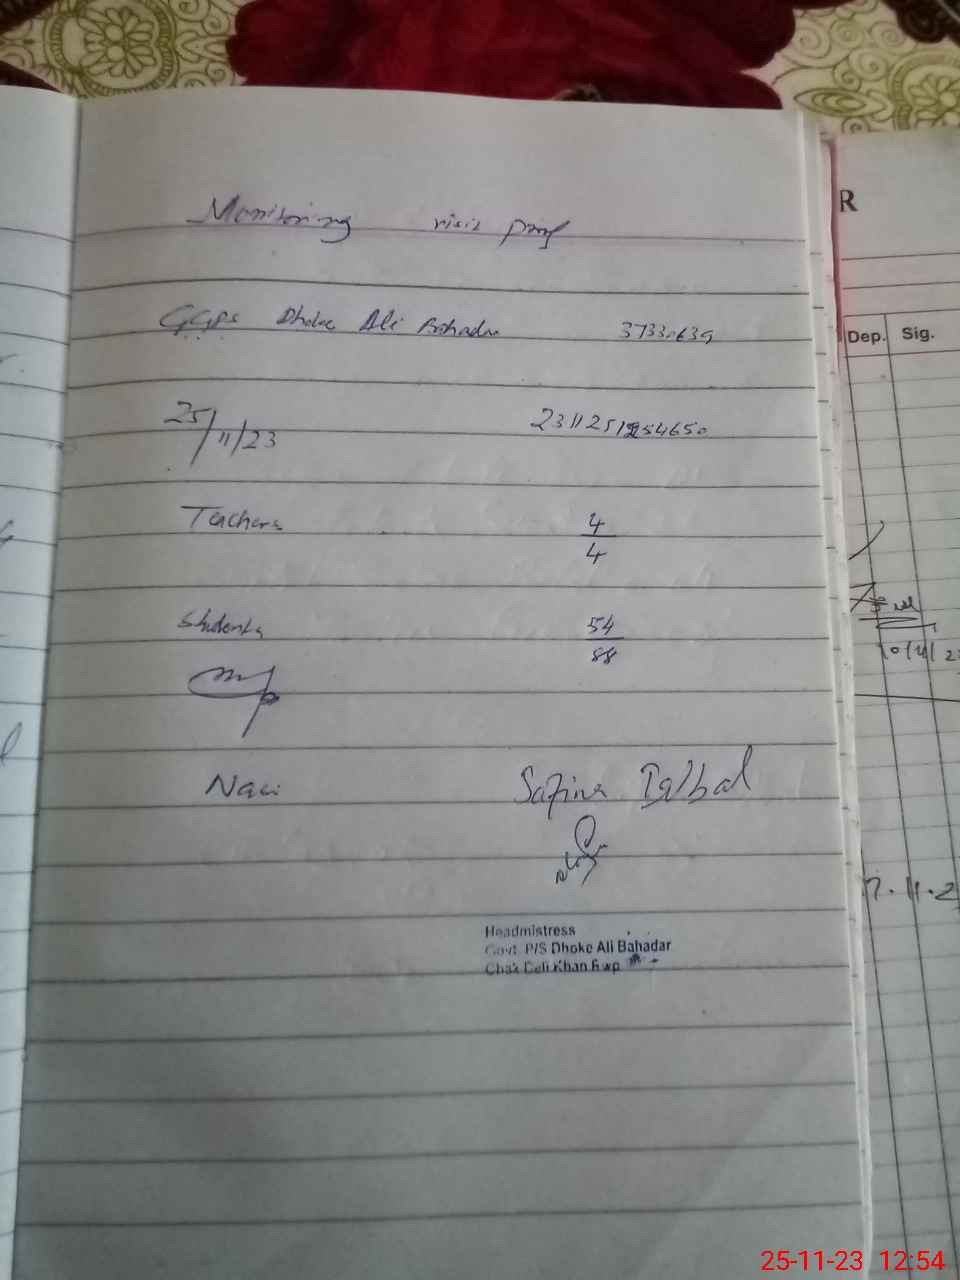 Monitoring visit proof
GGPS Dhoke Ali Bahadur 37330639
25/11/23
Teachers 4/4
Students 54/88
Safina Iqbal
Headmistress
Govt. P/S Dhoke Ali Bahadar
Chak Beli Khan Rwp
R
Dep. Sig.
25-11-23 12:54